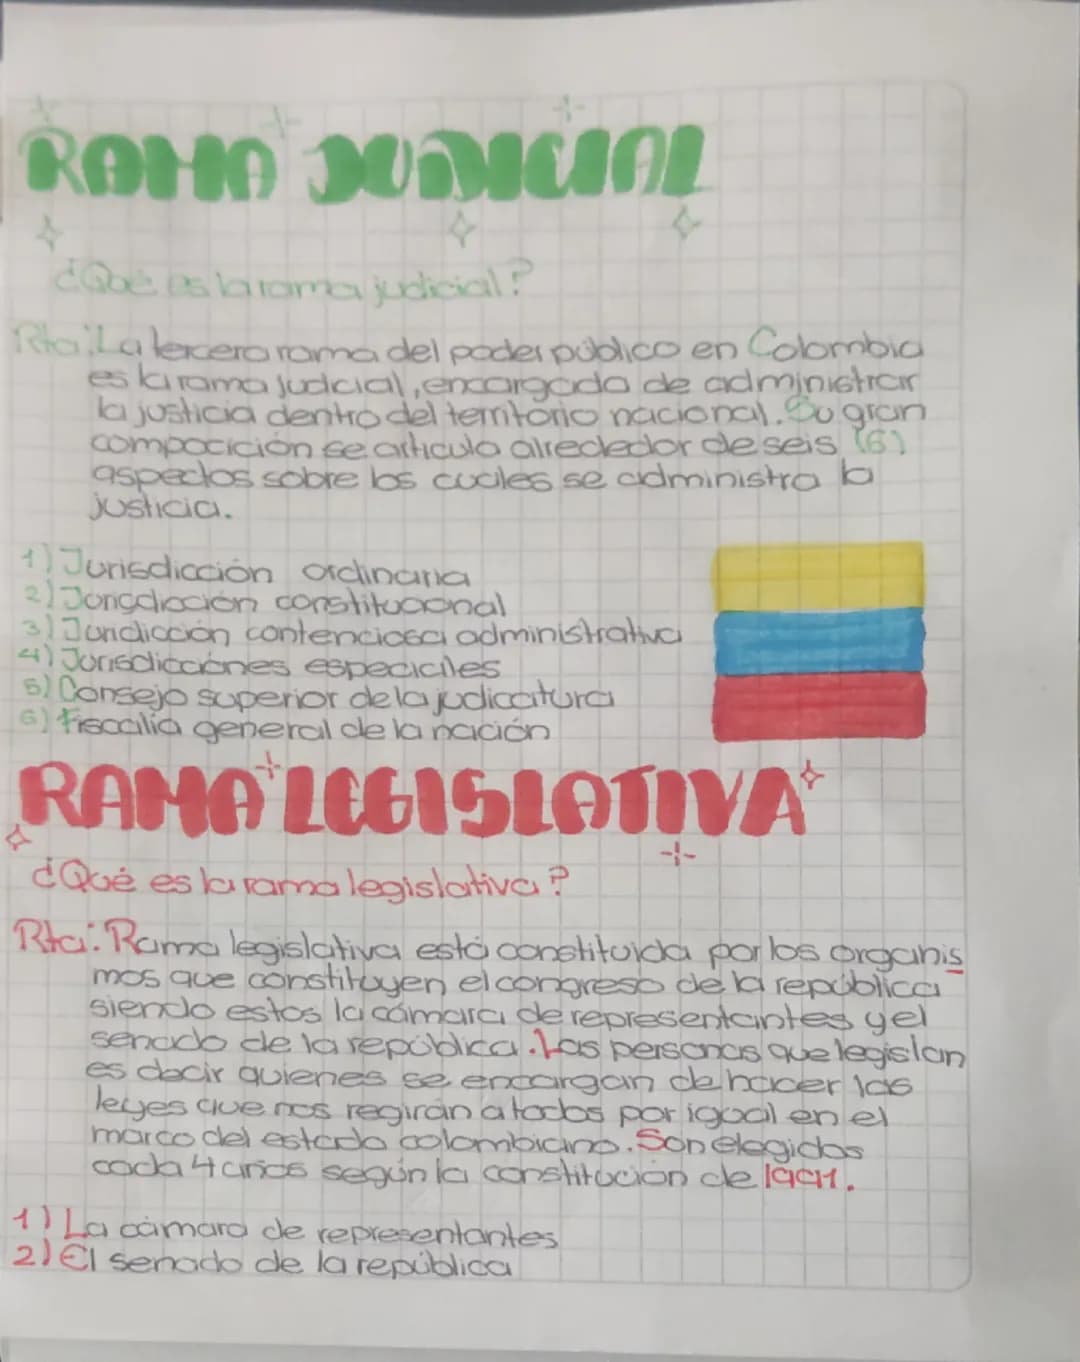 RAMA JUDICIAL
¿Qué es la rama judicial?
Rta: La tercera rama del poder público en Colombia
es la rama judicial, encargada de administrar
la justicia dentro del territorio nacional. Su gran
compocición se articula alrededor de seis (6)
aspectos sobre los cuales se administra la
justicia.
1) Jurisdicción ordinaria
2) Jurisdicción constitucional
3) Juridicción contenciosa administrativa
4) Jurisdicciones especiales
5) Consejo superior de la judicatura
6) Fiscalía general de la nación
RAMA LEGISLATIVA
¿Qué es la rama legislativa?
Rta: Rama legislativa está constituida por los organis
mos que constituyen el congreso de la república
siendo estos la cámara de representantes y el
senado de la república. Las personas que legislan
es decir quienes se encargan de hacer las
leyes que nos regirán a todos por igual en el
marco del estado colombiano. Son elegidos
cada 4 años según la constitución de 1991.
1) La cámara de representantes
2) El senado de la república